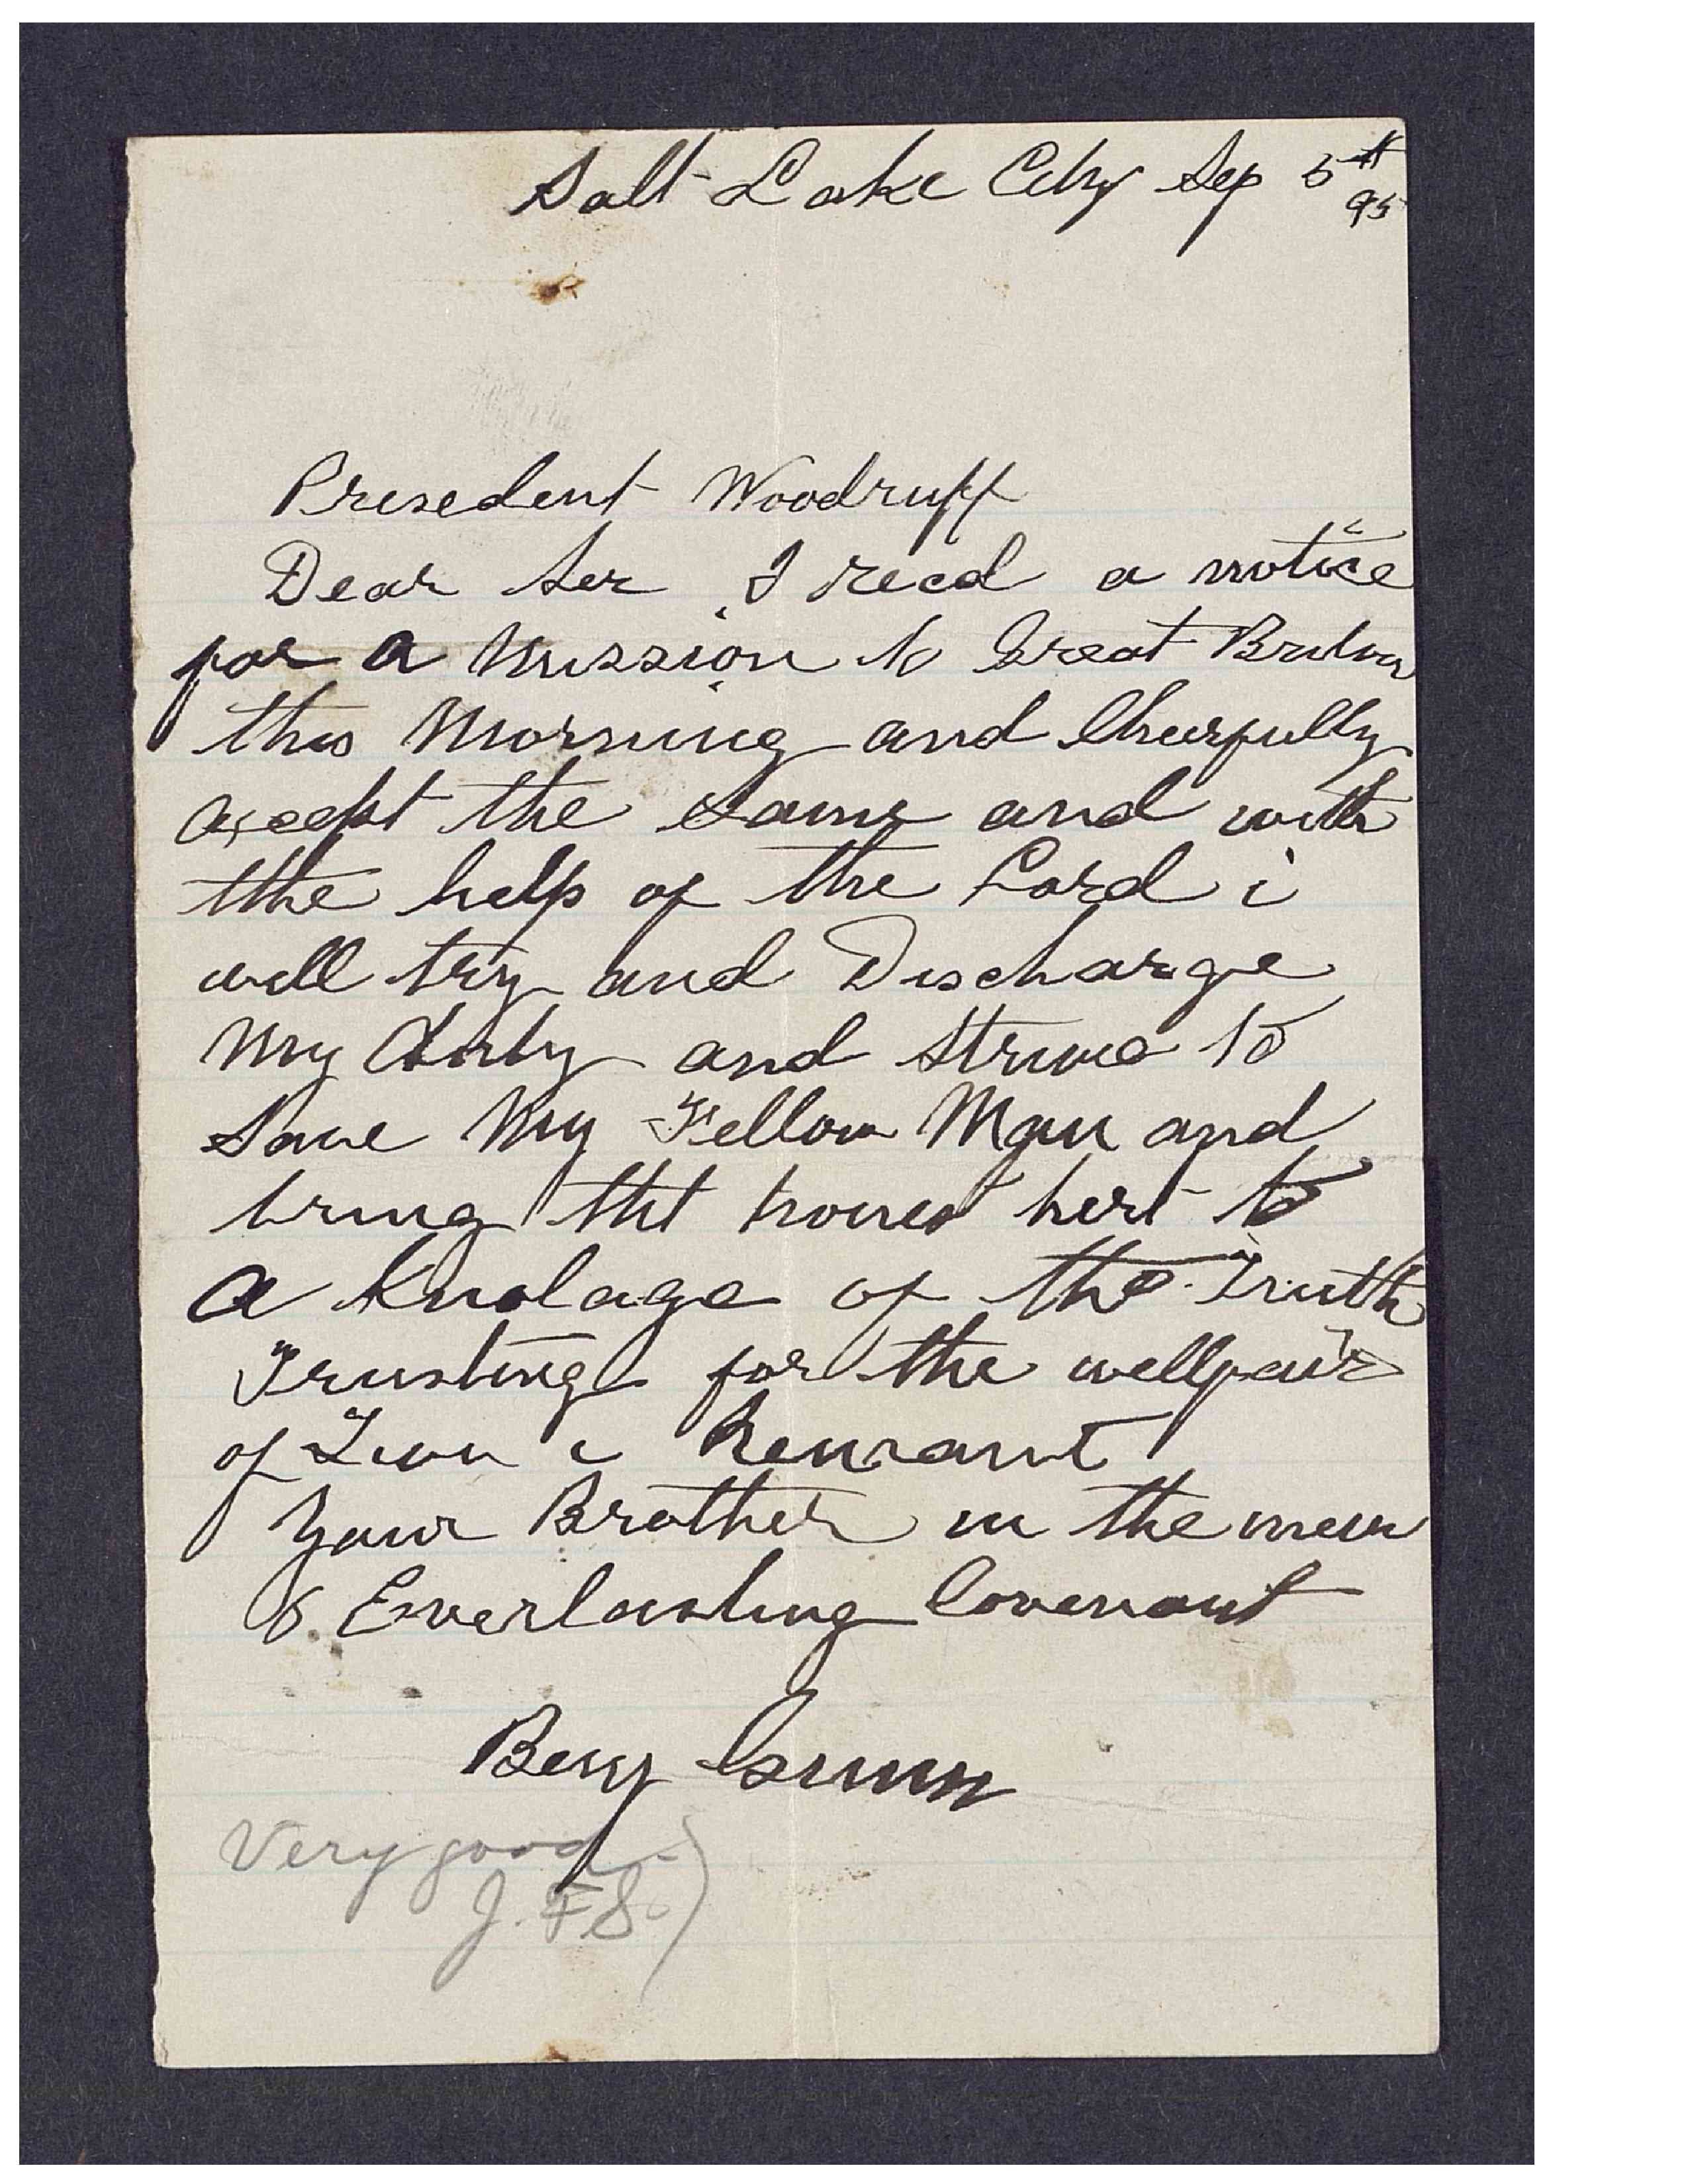 Salt Lake City Sep 5th
95
Presedent Woodruff
Dear Ser I recd a notice
for a Mission to Great Britan
this Morning and Cheerfully
accept the same and with
the help of the Lord i
will try and Discharge
My Duty and strive to
Save My Fellow Man and
bring the hones hert to
a knolage of the Truth
Trusting for the wellfair
of Zion i Remant
Your Brother in the new
& Everlasting Covenant
Benj
Very good
J. F S.